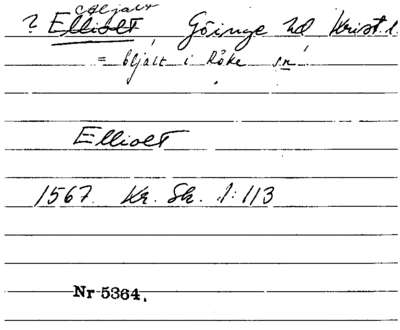 ? Elliolt, Göinge hd Krist. l.
= bljalt i Röke sn
Elliolt
1567. Kr. Sk. 1:113
Nr 5364.